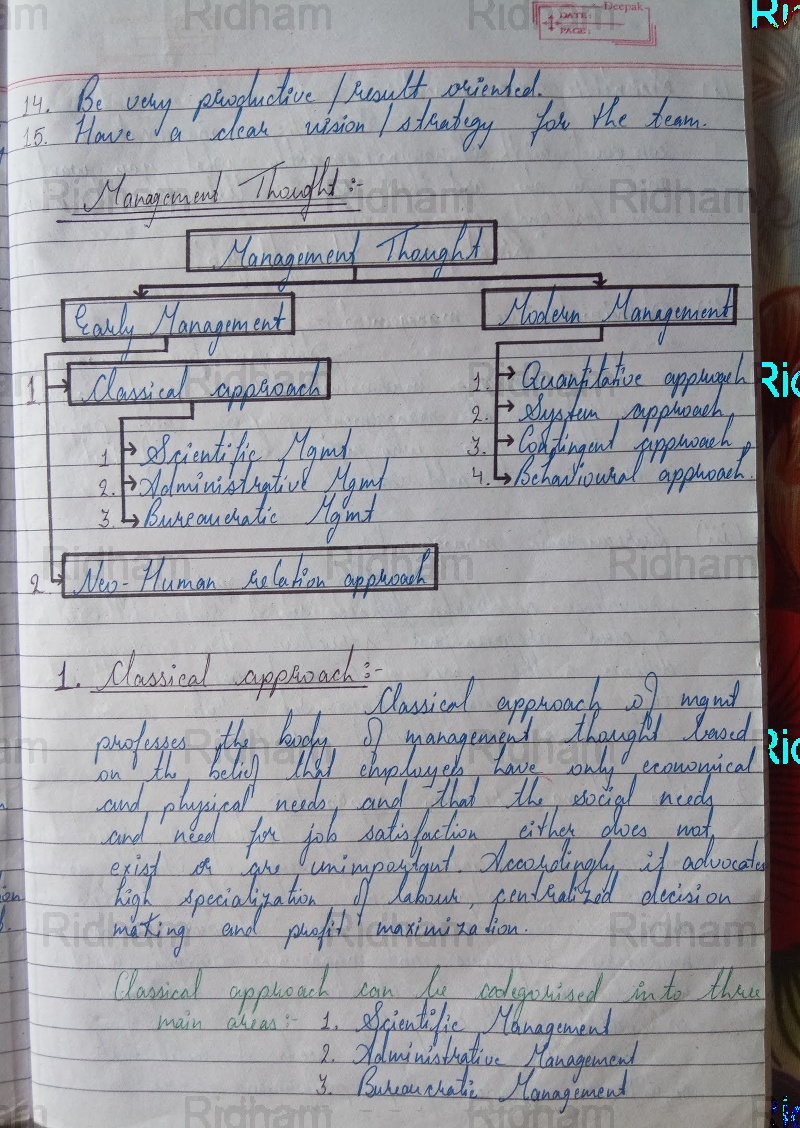 Deepak
DATE:
PAGE:
14. Be very productive / result oriented.
15. Have a clear vision / strategy for the team.
Management Thought :-
Management Thought
Early Management
Modern Management
1. Classical approach
1. Scientific Mgmt
2. Administrative Mgmt
3. Bureaucratic Mgmt
2. Neo-Human relation approach
1. Quantitative approach
2. System approach
3. Contingent approach
4. Behavioural approach.
1. Classical approach :-
Classical approach of mgmt
professes the body of management thought based
on the belief that employees have only economical
and physical needs and that the social needs
and need for job satisfaction either does not
exist or are unimportant. Accordingly it advocates
high specialization of labour, centralized decision
making and profit maximization.
Classical approach can be categorised into three
main areas :- 1. Scientific Management
2. Administrative Management
3. Bureaucratic Management
Ridham